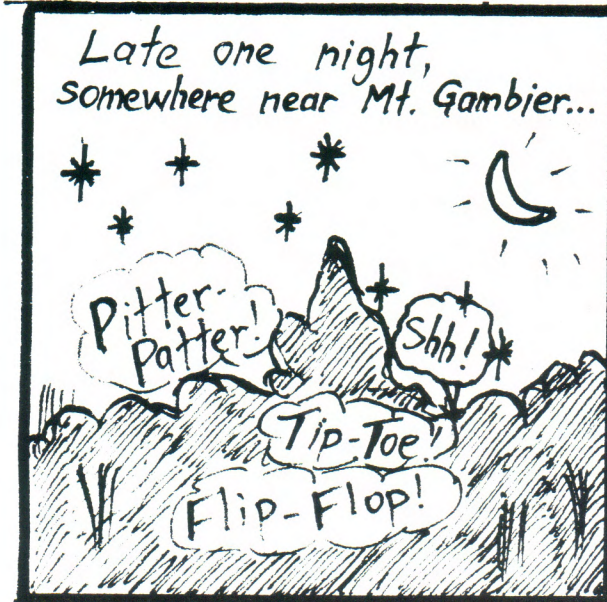 Late one night,
somewhere near Mt. Gambier...
Pitter-
Patter!
Shh!
Tip-Toe!
Flip-Flop!